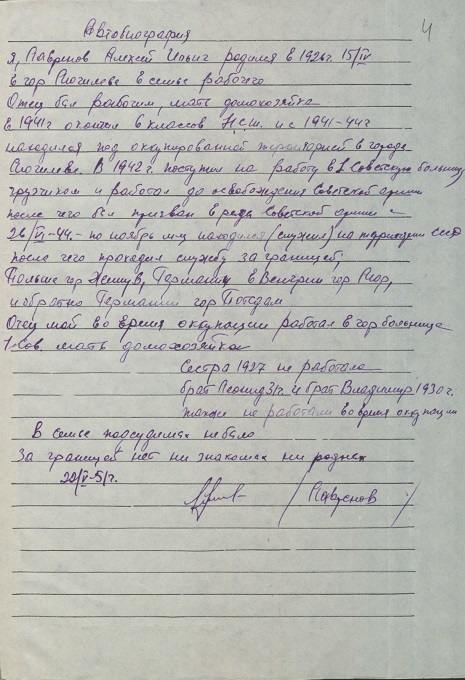 4
Автобиография
Я, Лавренов Алексей Ильич родился в 1926г. 15/IV
в гор Могилеве в семье рабочего
Отец был рабочим, мать домохозяйка
В 1941г окончил 6 классов Н.с.ш. и с 1941-44г
находился под оккупированной территорией в городе
Могилеве. В 1942г. поступил на работу в 1 Советскую больницу
грузчиком и работал до освобождения Советской армии
после чего был призван в ряды Советской армии с
26/VI-44.- по ноябрь м-ц находился (служил) на территории СССР
после чего проходил службу за границей,
Польше гор , Германии в Венгрии гор ,
и обратно Германии гор Потсдам
Отец мой во время оккупации работал в гор больнице
1-сов. мать домохозяйка
Сестра 1927 не работала
брат Леонид 31г. и брат Владимир 1930г.
также не работали во время оккупации
В семье подсудимых не было
За границей нет ни знакомых ни родных
22/V-51г.
Лавренов